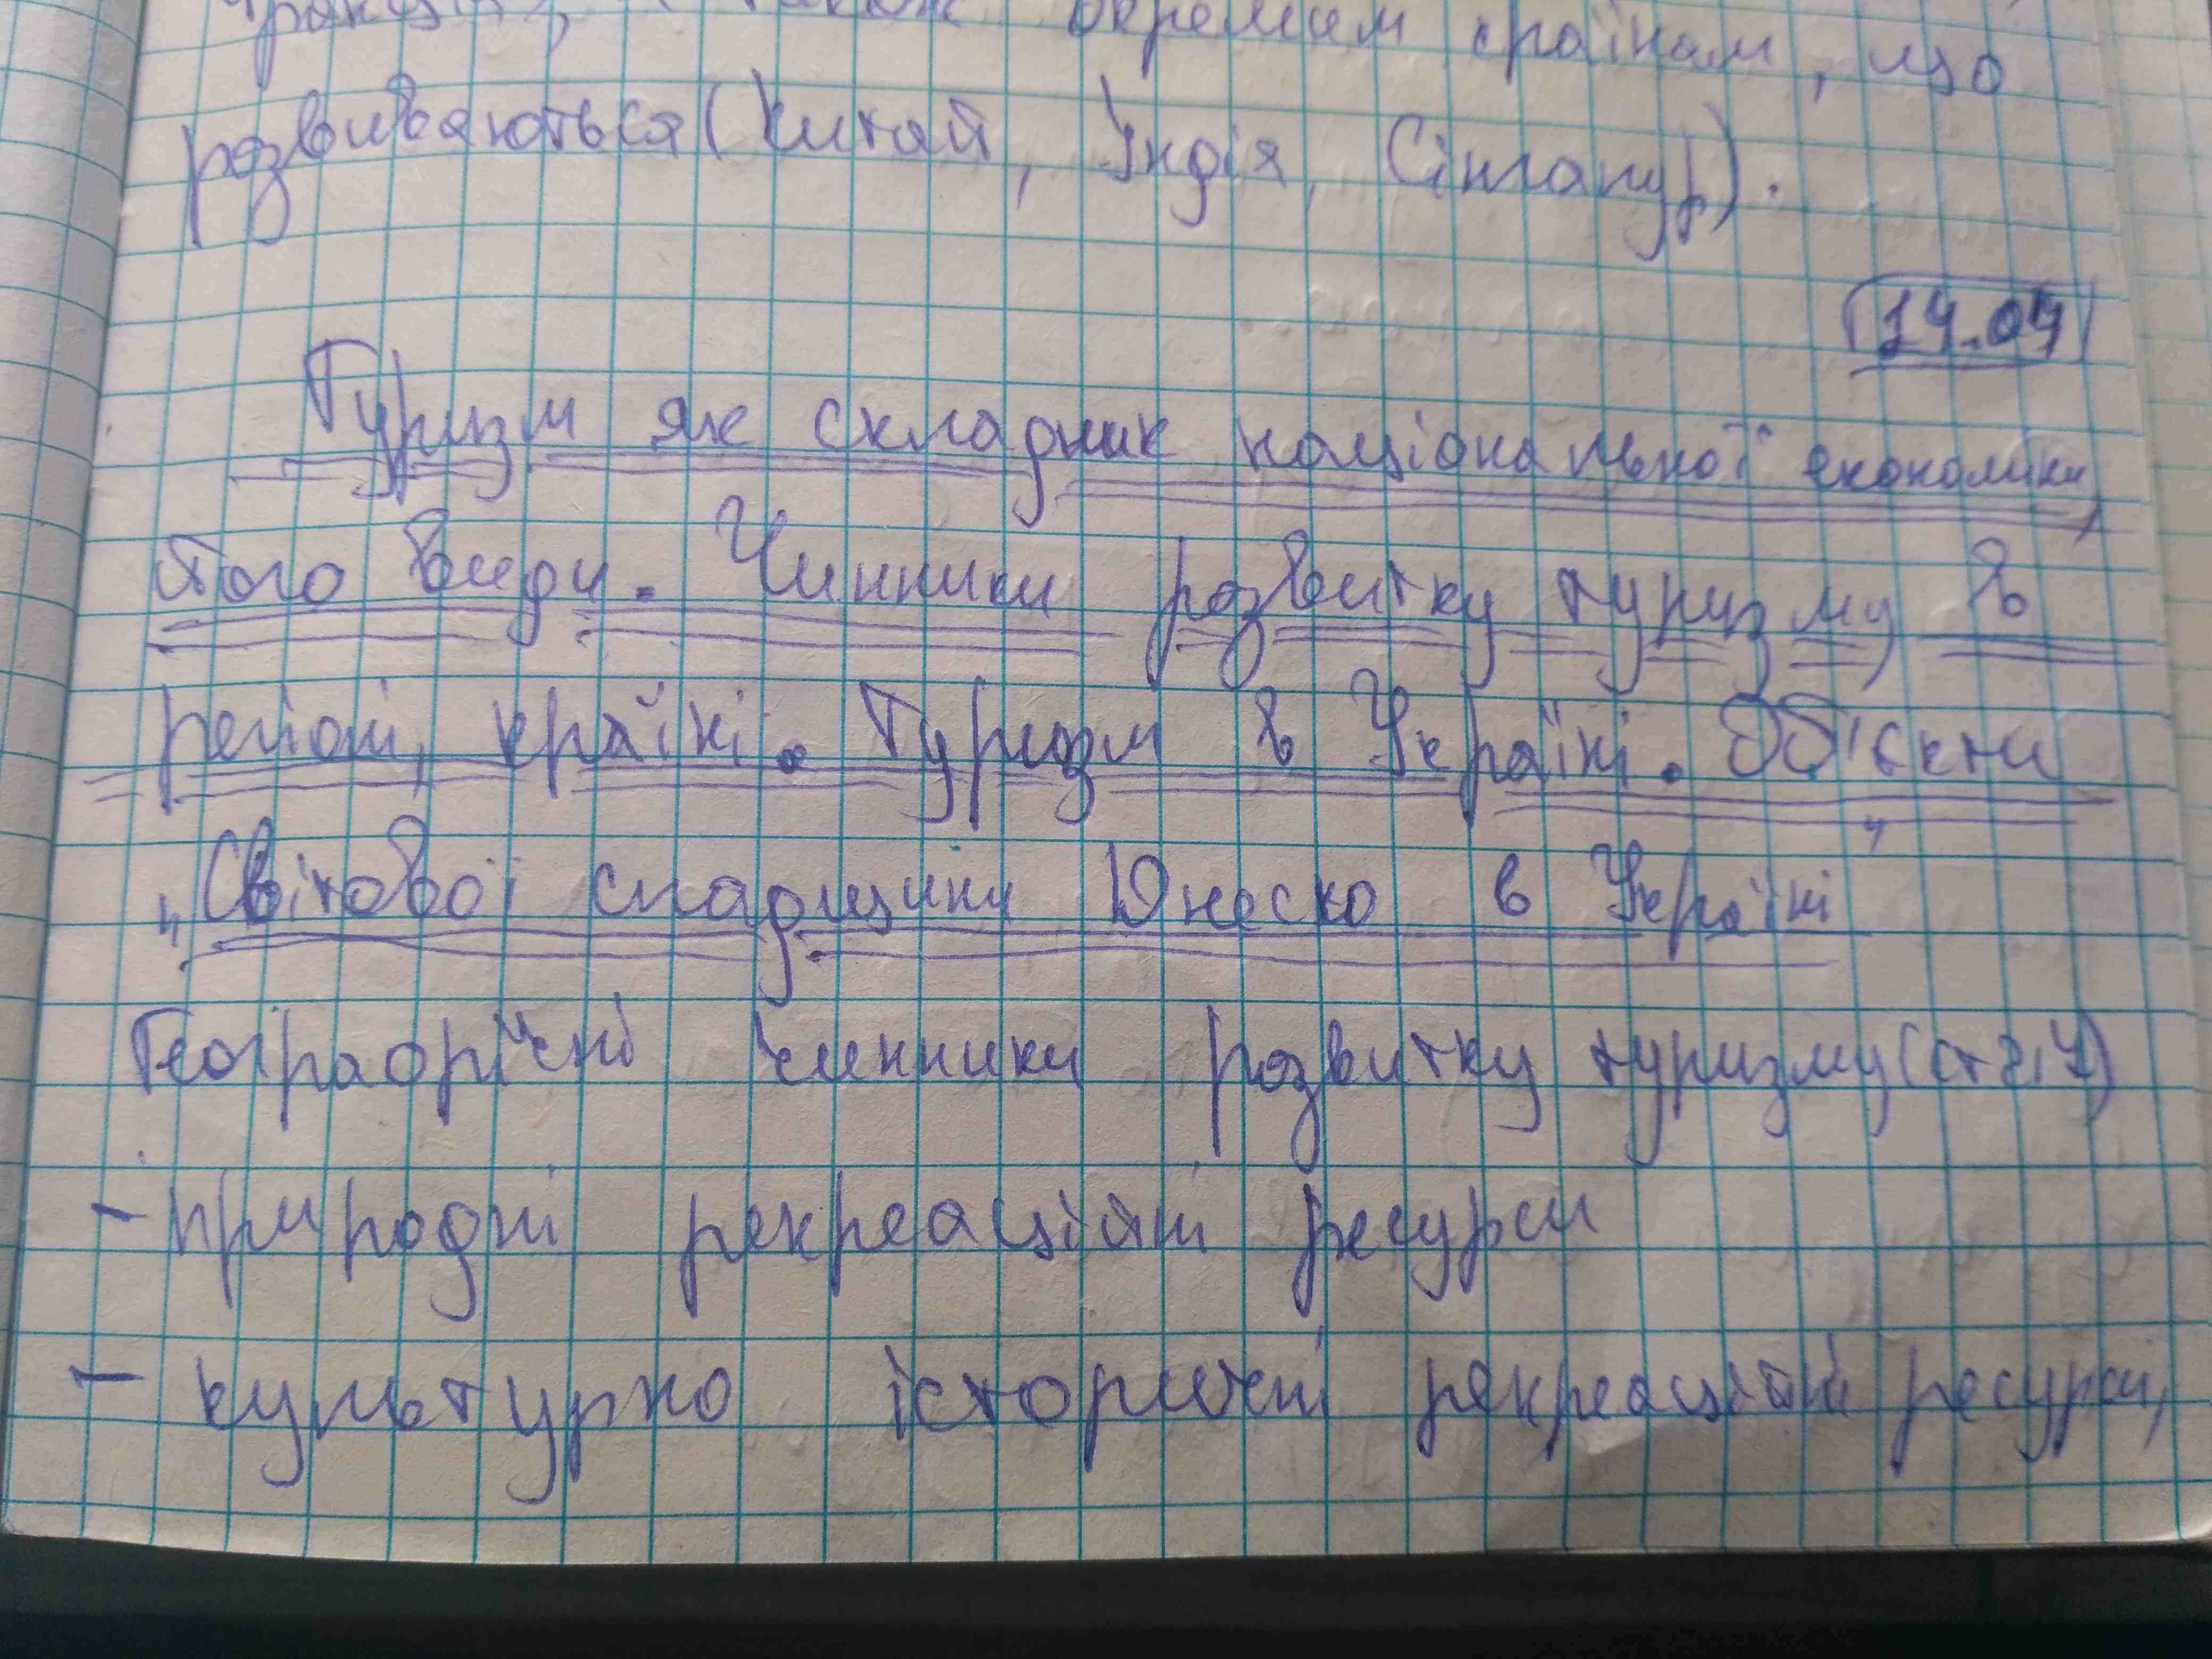 окремим країнам, що
розвиваються (Китай, Індія, Сінгапур).
14.04
Туризм як складник національної економіки,
його види. Чинники розвитку туризму в
регіоні, країні. Туризм в Україні. Об'єкти
„Світової спадщини Юнеско в Україні"
Географічні чинники розвитку туризму
- природні рекреаційні ресурси
- культурно історичні рекреаційні ресурси,